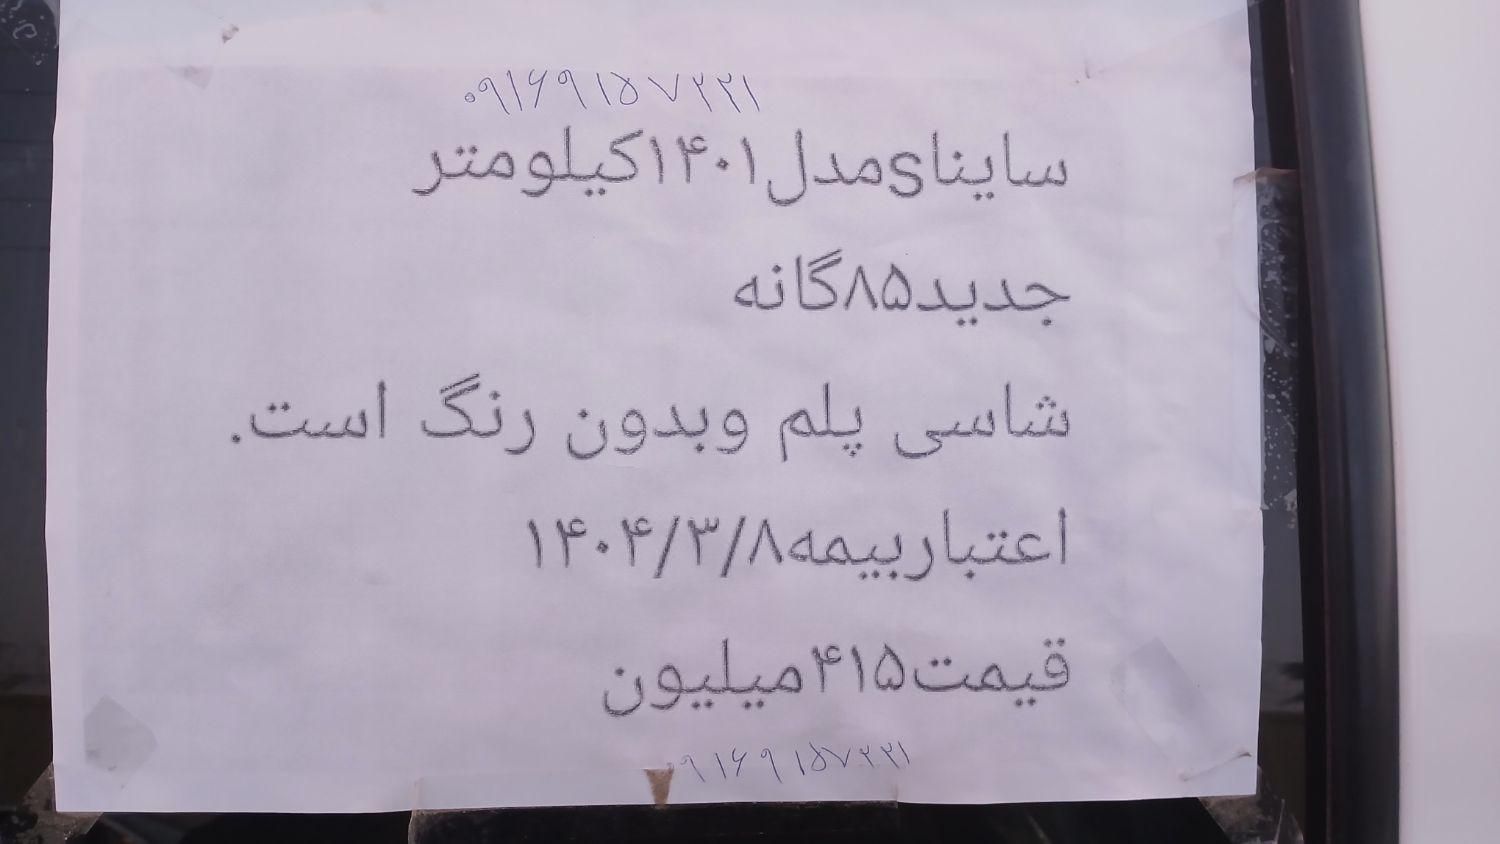 ۰۹۱۶۹۱۵۷۲۲۱
سایناsمدل۱۴۰۱کیلومتر
جدید۸۵گانه
شاسی پلم وبدون رنگ است.
اعتباربیمه۱۴۰۴/۳/۸
قیمت۴۱۵میلیون
۰۹۱۶۹۱۵۷۲۲۱